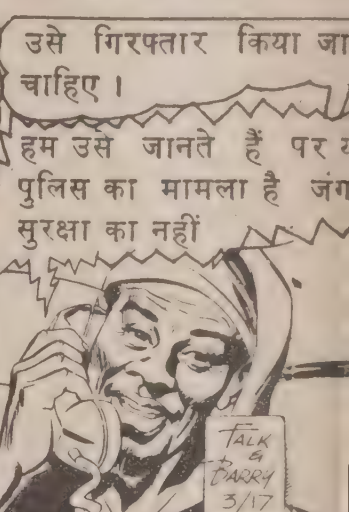 उसे गिरफ्तार किया जा
चाहिए ।
हम उसे जानते हैं पर य
पुलिस का मामला है जंग
सुरक्षा का नहीं
FALK
&
BARRY
3/17